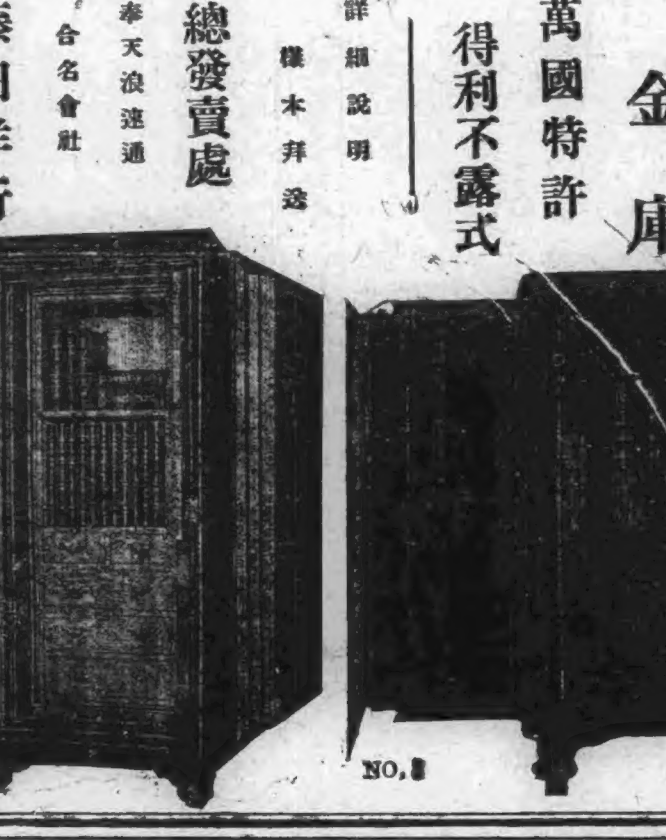 金庫
萬國特許
得利不露式
詳細說明
樣本拜送
總發賣處
奉天浪速通
合名會社
NO.